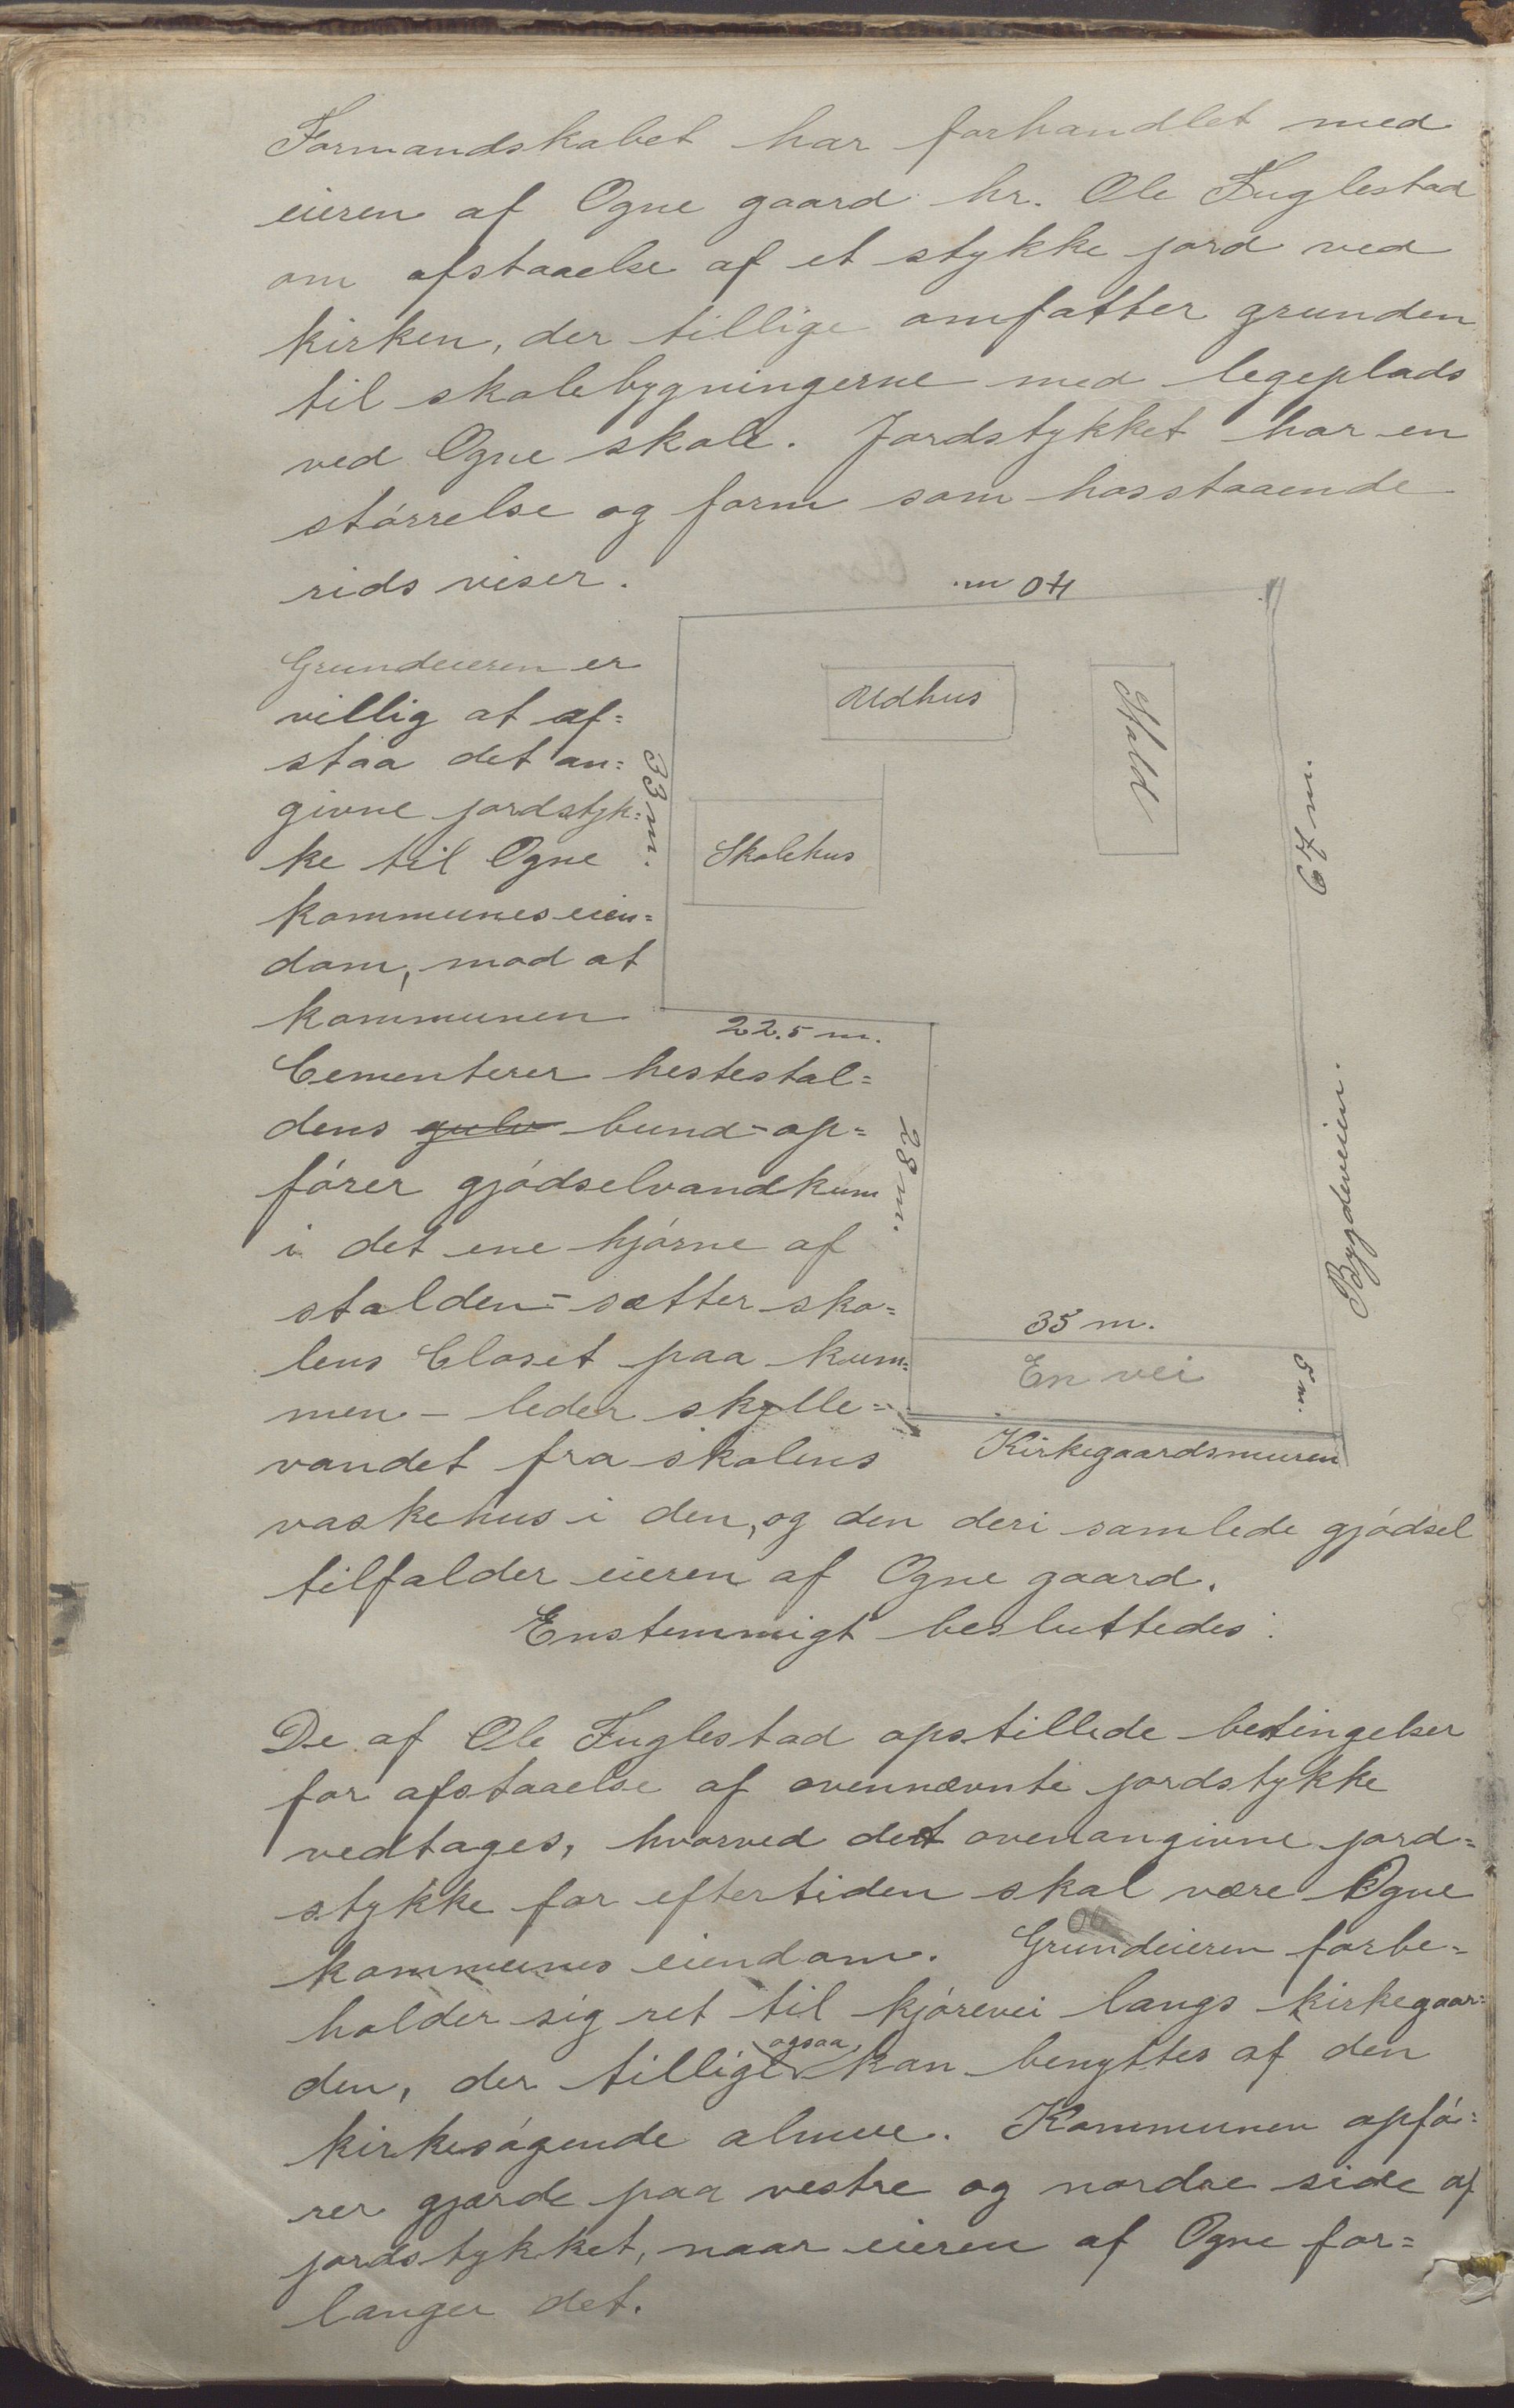 Formandskabet har forhandlet med
eieren af Ogne gaard hr. Ole Fuglestad
om afstaaelse af et stykke jord ved
kirken, der tillige omfatter grunden
til skolebygningerne med legeplads
ved Ogne skole. Jordstykket har en
størrelse og form som hosstaaende
rids viser.
40 m.
Grundeieren er
villig at af=
staa det an=
givne jordstyk=
ke til Ogne
kommunes eien=
dom, mod at
kommunen
Cementerer hestestal=
dens gulv bund - op=
fører gjødselvandkum
i det ene hjørne af
stalden - sætter sko=
lens Closet paa kum=
men - leder skylle=
vandet fra skolens
vaskehus i den, og den deri samlede gjødsel
tilfalder eieren af Ogne gaard.
Udhus
Stald
33 m.
Skolehus
67 m.
22.5 m.
28 m.
Bygdeveien.
35 m.
En vei
5 m.
Kirkegaardsmuren
Enstemmigt besluttedes:
De af Ole Fuglestad opstillede betingelser
for afstaaelse af ovennævnte jordstykke
vedtages, hvorved det ovenangivne jord=
stykke for eftertiden skal være Ogne
kommunes eiendom. Grundeieren forbe=
holder sig ret til kjørevei langs kirkegaar=
den, der tillige ogsaa kan benyttes af den
kirkesøgende almue. Kommunen opfø=
rer gjærde paa vestre og nordre side af
jordstykket, naar eieren af Ogne for=
langer det.